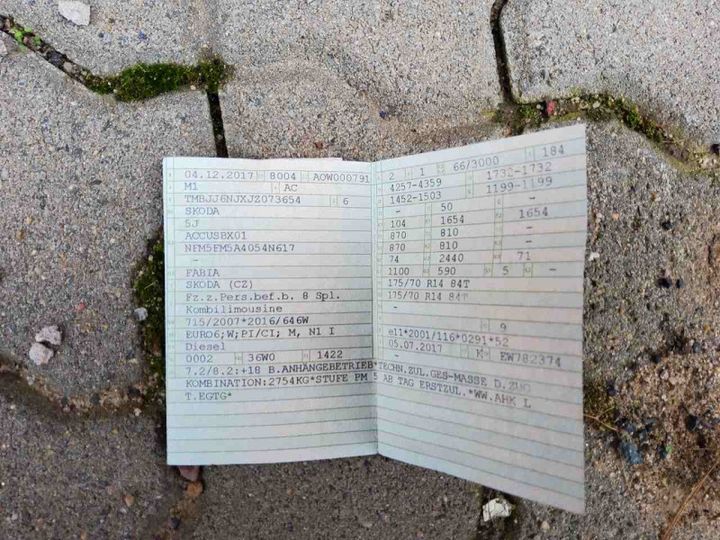 04.12.2017 8004 AOW000791
M1 AC
TMBJJ6NJXJZ073654 6
SKODA
5J
ACCUSBX01
NFM5FM5A4054N617
-
FABIA
SKODA (CZ)
Fz.z.Pers.bef.b. 8 Spl.
Kombilimousine
715/2007*2016/646W
EURO6;W;PI/CI; M, N1 I
Diesel
0002 36W0 1422
7.2/8.2:+18 B.ANHÄNGEBETRIEB*TECHN.ZUL.GES-MASSE D.ZUG
KOMBINATION:2754KG*STUFE PM 5 AB TAG ERSTZUL.*WW.AHK L
T.EGTG*
2 1 66/3000 184
4257-4359 1732-1732
1452-1503 1199-1199
- 50
104 1654 1654
870 810
870 810
74 2440 71
1100 590 5 -
175/70 R14 84T
175/70 R14 84T
-
- 9
e11*2001/116*0291*52
05.07.2017 K EW782374
-